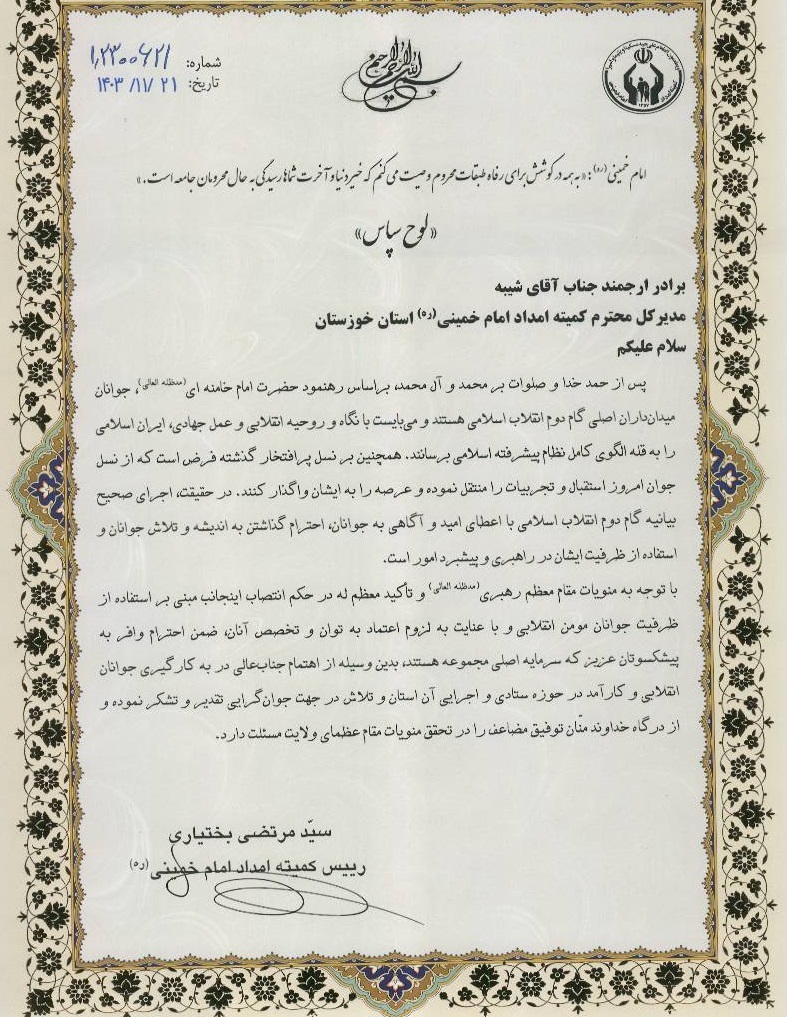 شماره: ۱,۲۳۰۰۶۲۱
تاریخ: ۱۴۰۳/۱۱/۲۱
امام خمینی(ره): «به همه در کوشش برای رفاه طبقات محروم وصیت می کنم که خیر دنیا و آخرت شماها رسیدگی به حال محرومان جامعه است.»
«لوح سپاس»
برادر ارجمند جناب آقای شیبه
مدیرکل محترم کمیته امداد امام خمینی(ره) استان خوزستان
سلام علیکم
پس از حمد خدا و صلوات بر محمد و آل محمد، براساس رهنمود حضرت امام خامنه ای(مدظله العالی)، جوانان
میدان‌داران اصلی گام دوم انقلاب اسلامی هستند و می‌بایست با نگاه و روحیه انقلابی و عمل جهادی، ایران اسلامی
را به قله الگوی کامل نظام پیشرفته اسلامی برسانند. همچنین بر نسل پرافتخار گذشته فرض است که از نسل
جوان امروز استقبال و تجربیات را منتقل نموده و عرصه را به ایشان واگذار کنند. در حقیقت، اجرای صحیح
بیانیه گام دوم انقلاب اسلامی با اعطای امید و آگاهی به جوانان، احترام گذاشتن به اندیشه و تلاش جوانان و
استفاده از ظرفیت ایشان در راهبری و پیشبرد امور است.
با توجه به منویات مقام معظم رهبری(مدظله العالی) و تأکید معظم له در حکم انتصاب اینجانب مبنی بر استفاده از
ظرفیت جوانان مومن انقلابی و با عنایت به لزوم اعتماد به توان و تخصص آنان، ضمن احترام وافر به
پیشکسوتان عزیز که سرمایه اصلی مجموعه هستند، بدین وسیله از اهتمام جناب‌عالی در به کارگیری جوانان
انقلابی و کارآمد در حوزه ستادی و اجرایی آن استان و تلاش در جهت جوان‌گرایی تقدیر و تشکر نموده و
از درگاه خداوند منّان توفیق مضاعف را در تحقق منویات مقام عظمای ولایت مسئلت دارد.
سیّد مرتضی بختیاری
رییس کمیته امداد امام خمینی(ره)